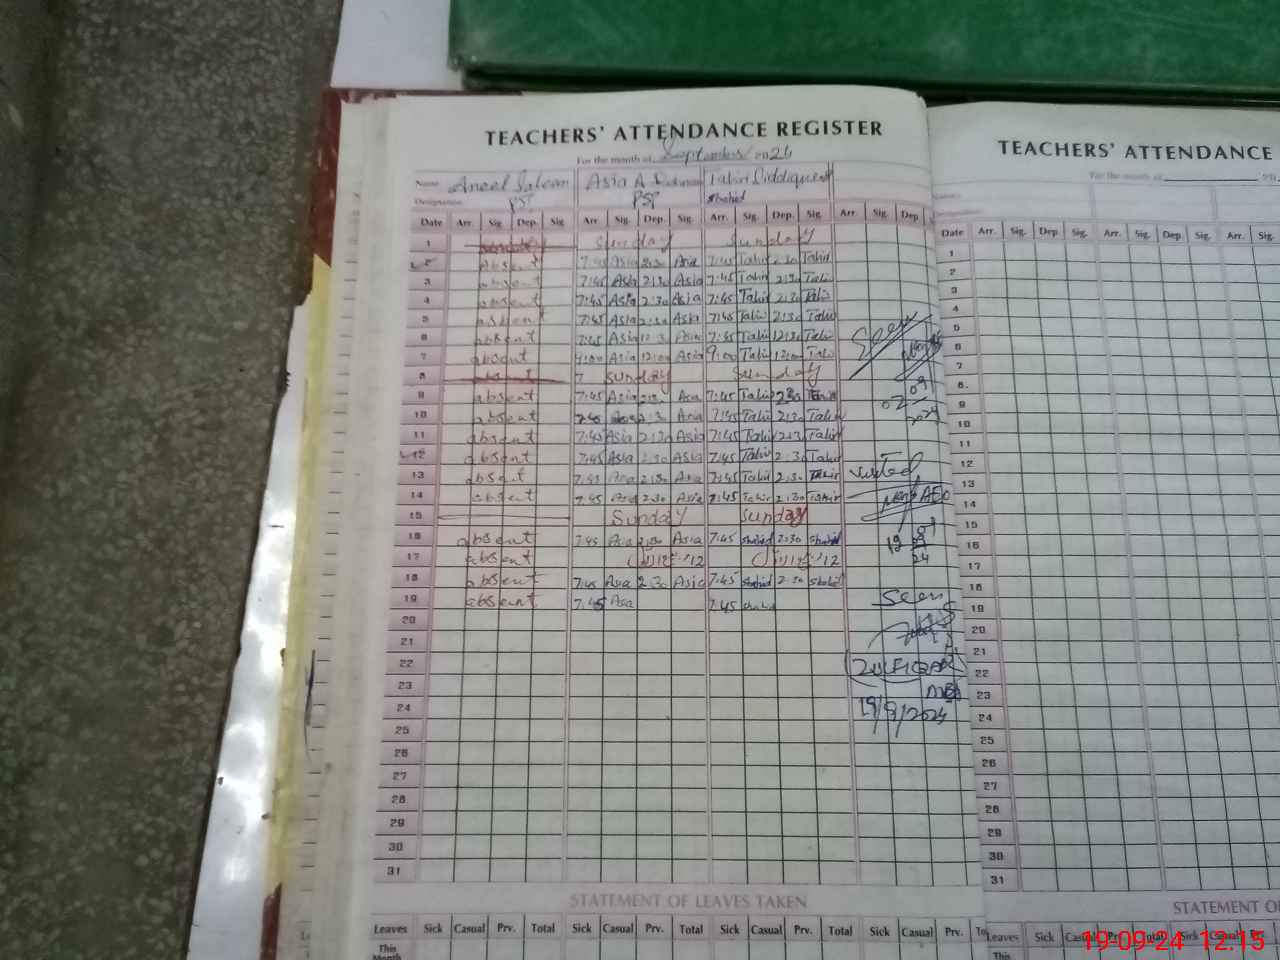 TEACHERS' ATTENDANCE REGISTER
For the month of September 2024
Name Aneel Saleem Asia A. Tahir Siddique
Designation PST PST Shahid
Date Arr. Sig. Dep. Sig. Arr. Sig. Dep. Sig. Arr. Sig. Dep. Sig. Arr. Sig. Dep.
1 absent Sunday Sunday
2 absent 7:45 Asia 2:30 Asia 7:45 Tahir 2:30 Tahir
3 absent 7:45 Asia 2:30 Asia 7:45 Tahir 2:30 Tahir
4 absent 7:45 Asia 2:30 Asia 7:45 Tahir 2:30 Tahir
5 absent 7:45 Asia 2:30 Asia 7:45 Tahir 2:30 Tahir
6 absent 7:45 Asia 12:30 Asia 7:45 Tahir 12:30 Tahir
7 absent 9:00 Asia 12:00 Asia 9:00 Tahir 12:00 Tahir
8 absent Sunday Sunday
9 absent 7:45 Asia 2:30 Asia 7:45 Tahir 2:30 Tahir
10 absent 7:45 Asia 2:30 Asia 7:45 Tahir 2:30 Tahir
11 absent 7:45 Asia 2:30 Asia 7:45 Tahir 2:30 Tahir
12 absent 7:45 Asia 2:30 Asia 7:45 Tahir 2:30 Tahir
13 absent 7:45 Asia 2:30 Asia 7:45 Tahir 2:30 Tahir
14 absent 7:45 Asia 2:30 Asia 7:45 Tahir 2:30 Tahir
15 Sunday Sunday
16 absent 7:45 Asia 2:30 Asia 7:45 Shahid 2:30 Shahid
17 absent
18 absent 7:45 Asia 2:30 Asia 7:45 Shahid 2:30 Shahid
19 absent 7:45 Asia 7:45 Shahid
20
21
22
23
24
25
26
27
28
29
30
31
Seen
02
09
2024
Visited
AEO
19
09
24
Seen
19/9/2024
STATEMENT OF LEAVES TAKEN
Leaves Sick Casual Prv. Total Sick Casual Prv. Total Sick Casual Prv. Total Sick Casual Prv.
This
Month
TEACHERS' ATTENDANCE
For the month of
Date Arr. Sig. Dep. Sig. Arr. Sig. Dep. Sig. Arr. Sig.
1
2
3
4
5
6
7
8
9
10
11
12
13
14
15
16
17
18
19
20
21
22
23
24
25
26
27
28
29
30
31
STATEMENT OF
Leaves Sick Casual Prv. Total Sick Casual
This
19-09-24 12.15